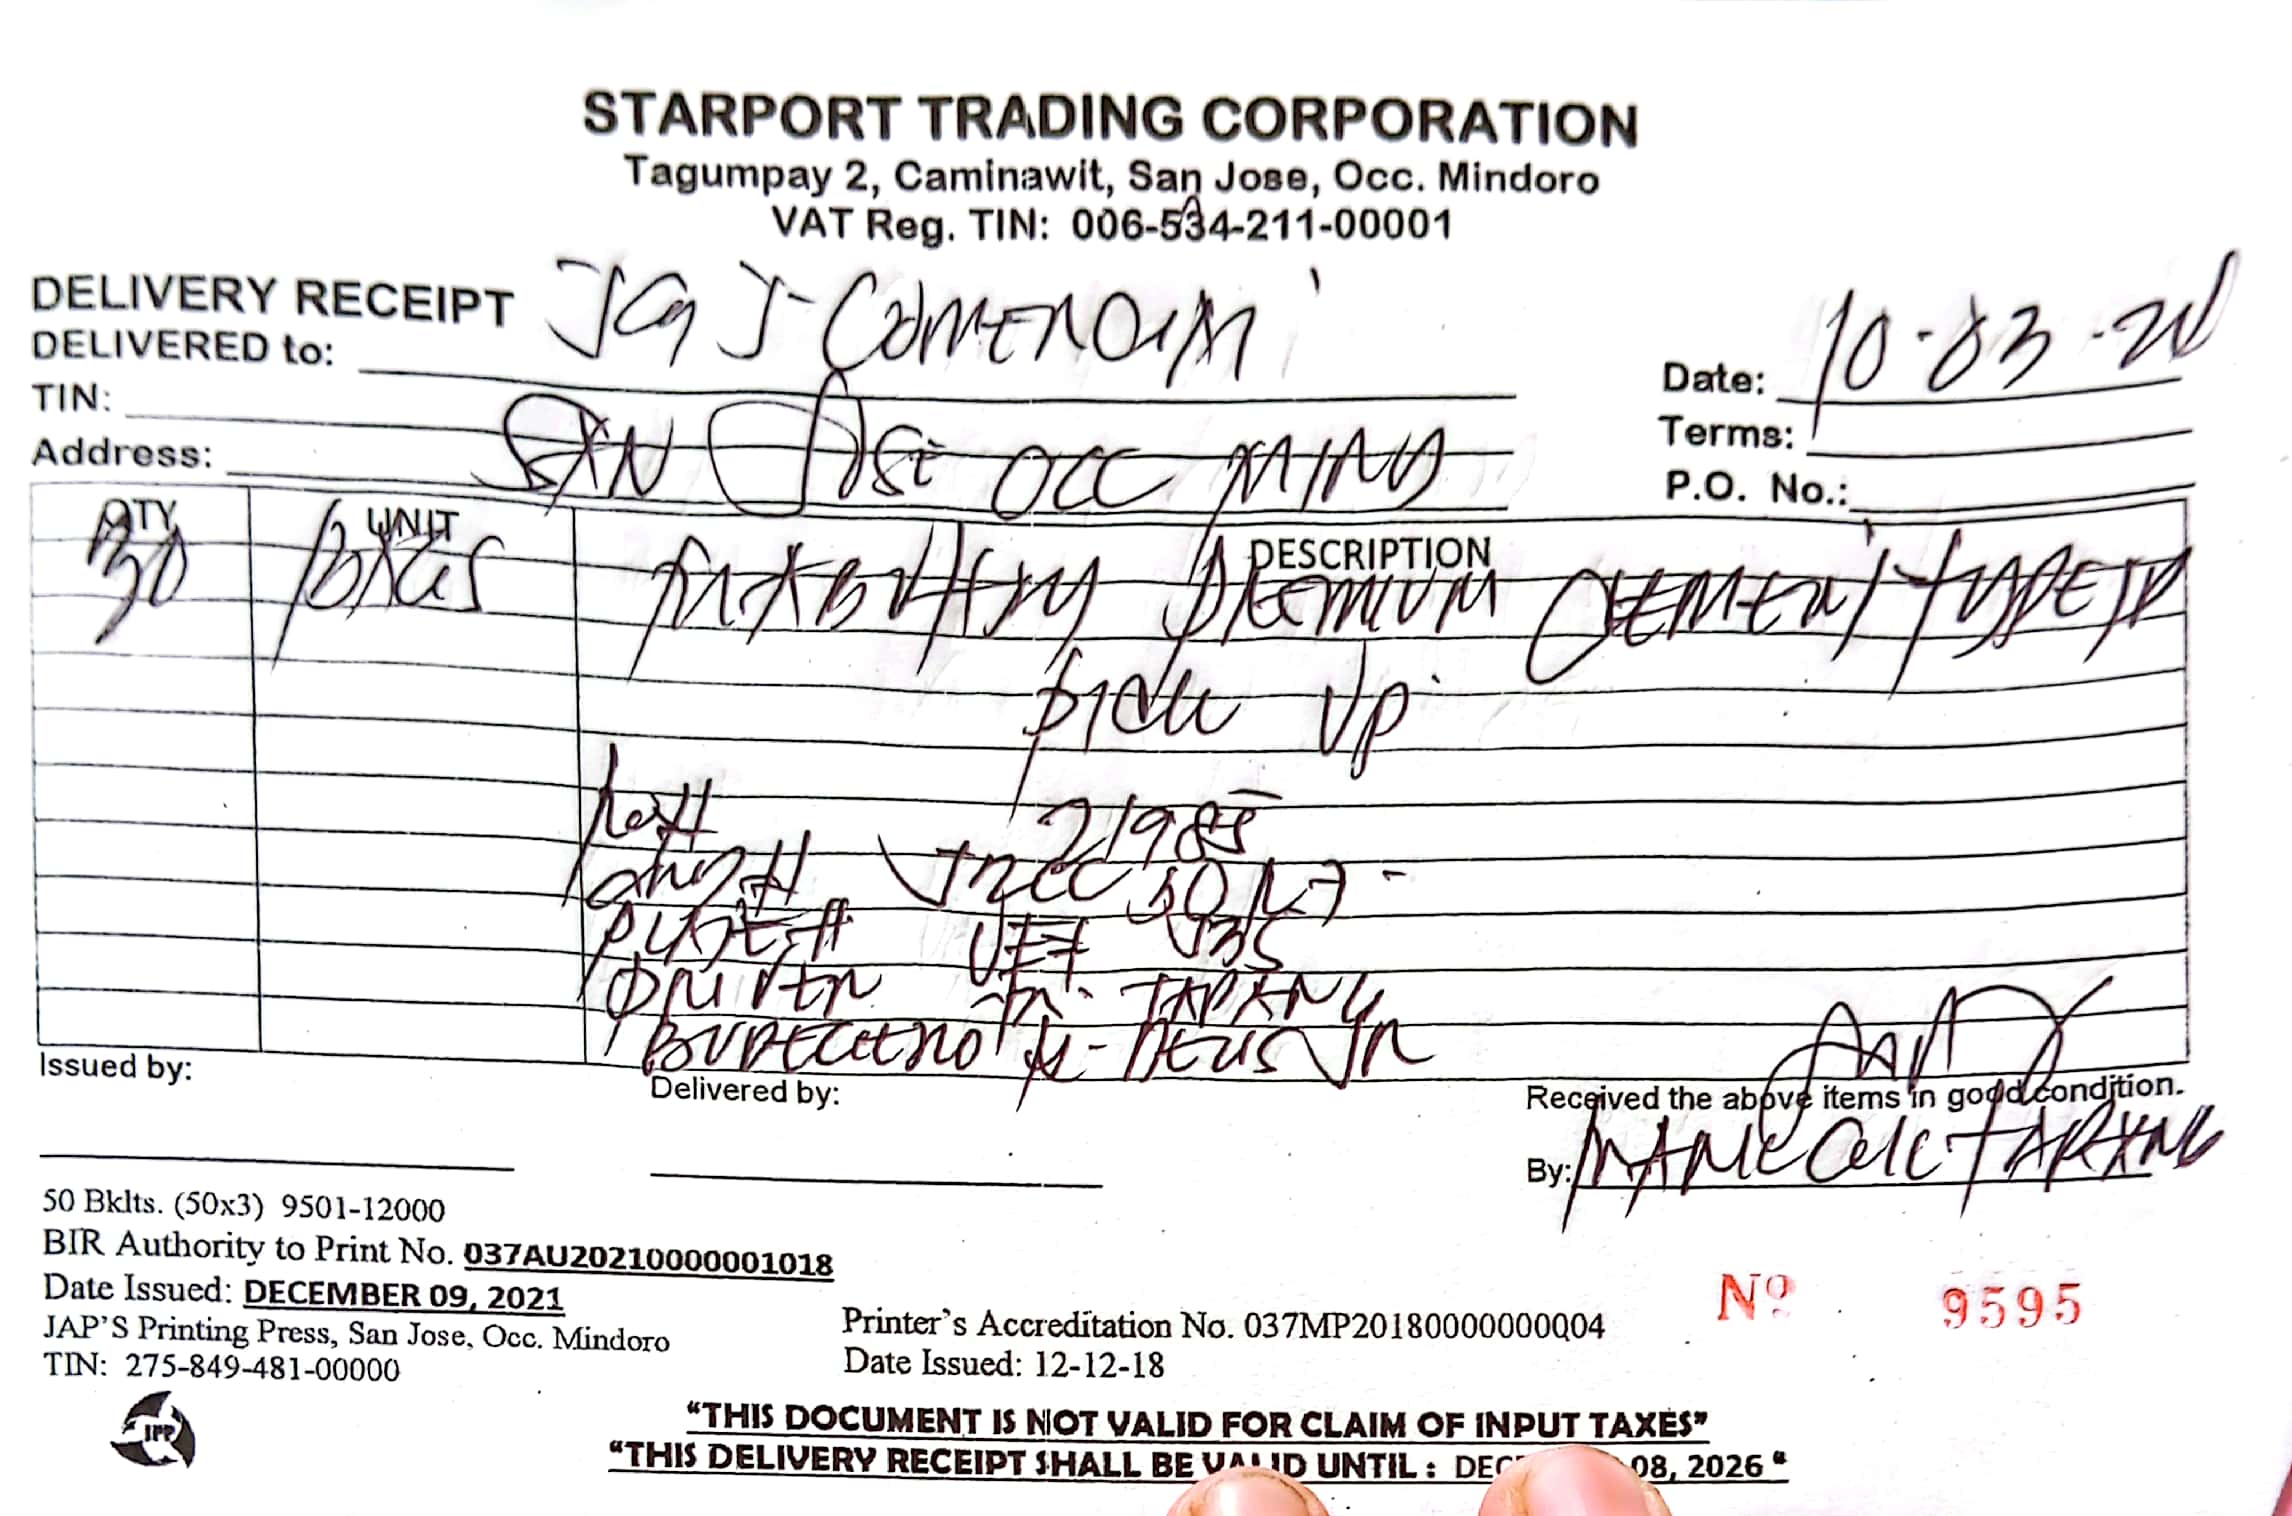 STARPORT TRADING CORPORATION
Tagumpay 2, Caminawit, San Jose, Occ. Mindoro
VAT Reg. TIN: 006-534-211-00001
DELIVERY RECEIPT
DELIVERED to: JGJ
Date: 10-03-
TIN:
Terms:
Address: SAN JOSE OCC MIND
P.O. No.:
QTY UNIT DESCRIPTION
30 PREMIUM CEMENT TYPE IP
PICK UP
21985
PLATE #
DRIVER TAPANG
JR
Issued by:
Delivered by:
Received the above items in good condition.
By:
50 Bklts. (50x3) 9501-12000
BIR Authority to Print No. 037AU20210000001018
Date Issued: DECEMBER 09, 2021
JAP'S Printing Press, San Jose, Occ. Mindoro
TIN: 275-849-481-00000
Printer's Accreditation No. 037MP20180000000004
Date Issued: 12-12-18
Nº 9595
JPP
"THIS DOCUMENT IS NOT VALID FOR CLAIM OF INPUT TAXES"
"THIS DELIVERY RECEIPT SHALL BE VALID UNTIL : 08, 2026 "